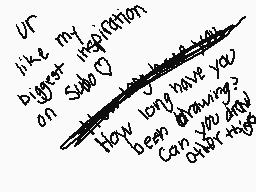 ur
like my
biggest inspiration
on Sudo♡
How long have you
been drawing?
can you draw
other things